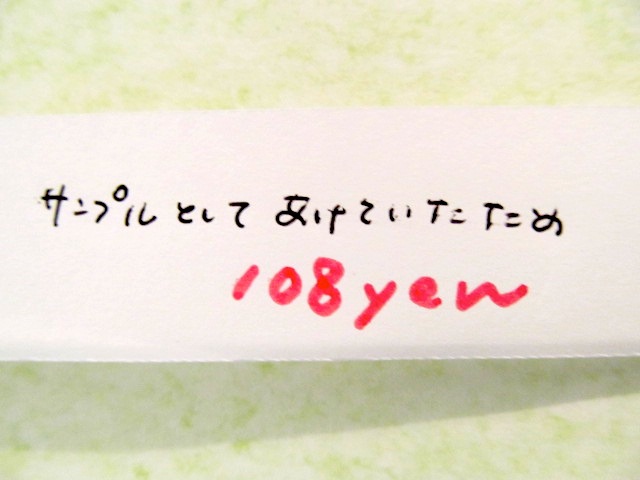 サンプルとして あけていたため
108yen